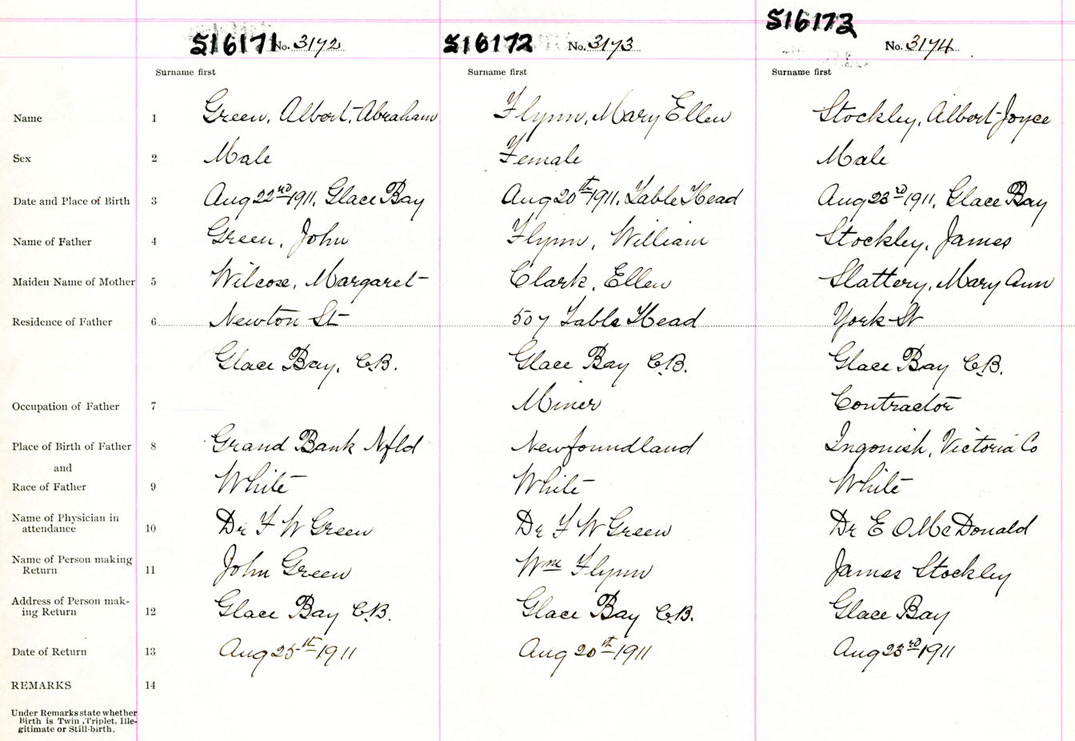 S16171 No. 3172 S16172 No. 3173 S16173 No. 3174
Surname first Surname first Surname first
Name 1 Green, Albert Abraham Flynn, Mary Ellen Stockley, Albert Joyce
Sex 2 Male Female Male
Date and Place of Birth 3 Aug 22nd 1911, Glace Bay Aug 20th 1911, Table Head Aug 23rd 1911, Glace Bay
Name of Father 4 Green, John Flynn, William Stockley, James
Maiden Name of Mother 5 Wilcox, Margaret Clark, Ellen Slattery, Mary Ann
Residence of Father 6 Newton St 507 Table Head York St
Glace Bay, C.B. Glace Bay C.B. Glace Bay C.B.
Occupation of Father 7 Miner Contractor
Place of Birth of Father 8 Grand Bank Nfld Newfoundland Ingonish, Victoria Co
and
Race of Father 9 White White White
Name of Physician in
attendance 10 Dr F W Green Dr F W Green Dr E O McDonald
Name of Person making
Return 11 John Green Wm Flynn James Stockley
Address of Person mak-
ing Return 12 Glace Bay C.B. Glace Bay C.B. Glace Bay
Date of Return 13 Aug 25th 1911 Aug 20th 1911 Aug 23rd 1911
REMARKS 14
Under Remarks state whether
Birth is Twin, Triplet, Ille-
gitimate or Still-birth.